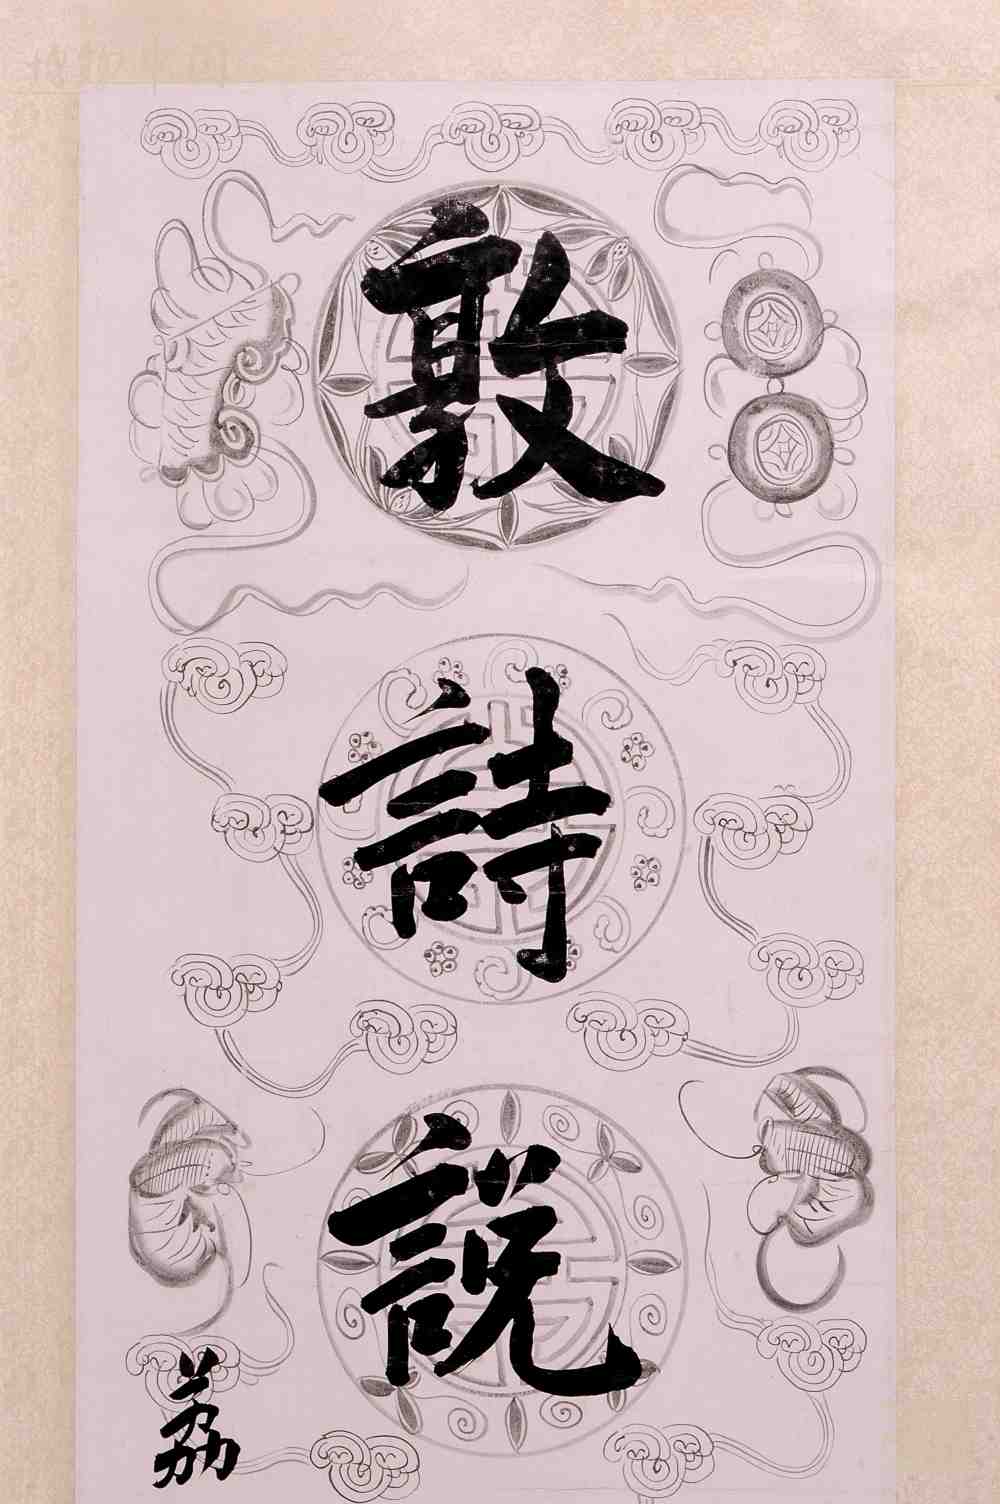 敦
詩
說
荔